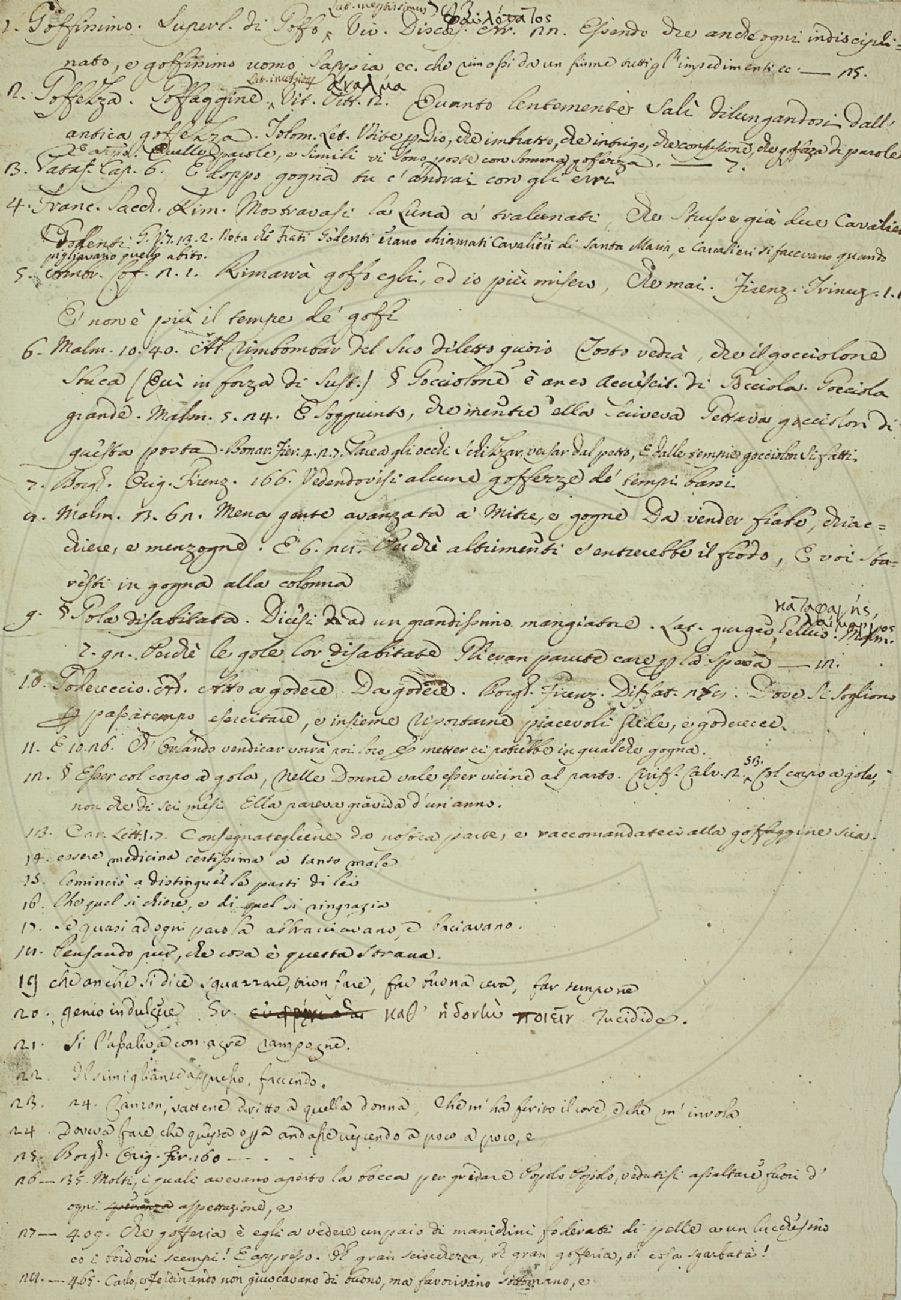 Lat. ineptissimus
φαυλότατος
1. Goffissimo. Superl. di Goffo, Viv. Disc. Arn. 22. Essendo che anche ogni indiscipli=
nato, e goffissimo uomo sappia ec. che rimossi da un fiume tutti gl'impedimenti ec — 25.
2. Goffezza. Goffaggine, Vit. Pitt. 12. Quanto lentamente salì dilungandosi dall'
antica goffezza. Tolom. Let. che imbratto, che intrigo, che confusione, che goffezza di parole
parole, e simili vi sono poste con somma gofferia. — 7.
3. Pataff. Cap. 6. E doppo gogna tu c'andrai con gli
4. Franc. Sacch. Rim. Mostravasi la Luna a' tralunati, Che strusse già due Cavalier
Godenti. G. V. 7. 13. 2. Nota che Frati Godenti erano chiamati Cavalieri di Santa Maria, e Cavalieri si facevano quando
pigliavano quello abito.
5. Ambr. Cof. 2. 1. Rimarrà goffo egli, ed io più misero, Che mai. Firenz. Trinuz. 1. 1
E' non è più il tempo de' goffi
6. Malm. 10. 40. Al rimbombar del suo diletto quoio Tosto vedrà, che il gocciolone
sbuca (Qui in forza di Sust.) § Gocciolone è anco accrescit. di Gocciola. Gocciola
grande. Malm. 5. 24. E soggiunto, che mentre ella scriveva Gettava gocciolon di
questa posta. Bonar. Fier. 4. 2. 7. Parea gli occhi schizzar, versar dal petto, E dalle tempie gocciolon sì fatti
7. Borgh. Orig. Firenz. 166. Vedendovisi alcune gofferzze de' tempi bassi
8. Malm. 3. 62. Mena gente avanzata a' Mitre, e gogne Da vender fiabe, chiac=
chiere, e menzogne. E 6. Perchè altrimenti s'entrerebbe il frodo, E voi sta=
resti in gogna alla colonna
καταφαγής,
λαίμαργος
9. § Gola disabitata. Dicesi ad un grandissimo mangiatore. Lat. gurges, helluo. Malm.
Perchè le gole lor disabitate Gli eran parute care p la spesa — 12.
10. Godereccio. Atto a godere. Da godere. Borgh. Firenz. Disfat. Dove si sogliono
p passatempo esercitare, e insieme riportarne piacevoli prede, e goderecce.
11. E 10. 26. D'Orlando vendicar vorrà poi loco, E metterci potrebbe in qualche gogna.
12. § Esser col corpo a gola, Nelle Donne vale esser vicine al parto. Ciriff. Calv. 2. 53. Col corpo a gola,
non che di sei mesi Ella pareva gravida d'un anno.
13. Car. Lett. 1. 7. Consegnateglieне da nostra parte, e raccomandateci alla goffaggine sua.
14. essere medicina certissima a tanto male
15. Cominciò a distinguer le parti di lei
16. Che quel si chiere, e di quel si ringrazia
17. Se quasi ad ogni parola abbracciavano, e baciavano.
18. Pensando pur, che cosa è questa strana.
19 che anche si dice sguazzare, buon fare, far buona cera, far tempone
20. genio indulgere Gr. καθ' ἡδονὴν ποιεῖν Tucidide.
21. Sì l'assaliva con agre rampogne.
22. Il simigliante appresso, facendo.
23. 24. Canzon, vattene dritto a quella donna, Che m'ha ferito il core, e che m'invola
24. Doveva fare che questa essa andasse uscendo a poco a poco, e
25. Borgh. Orig. Fir. 160 — . . .
26 — 135. Molti, i quali avevano aperto la bocca per gridare Popolo Popolo, vedutisi assaltare fuori d'
ogni aspettazione, e
27 — 409. Che gofferia è egli a vedere un paio di manichini foderati di pelle a un lucchesino
co i bordoni scempi! E appresso. Oh gran sciocchezza, oh gran gofferia, oh cosa sgarbata!
28. — 465. Carlo, e Ferdinando non giuocavano di buono, ma favorivano sottomano, e